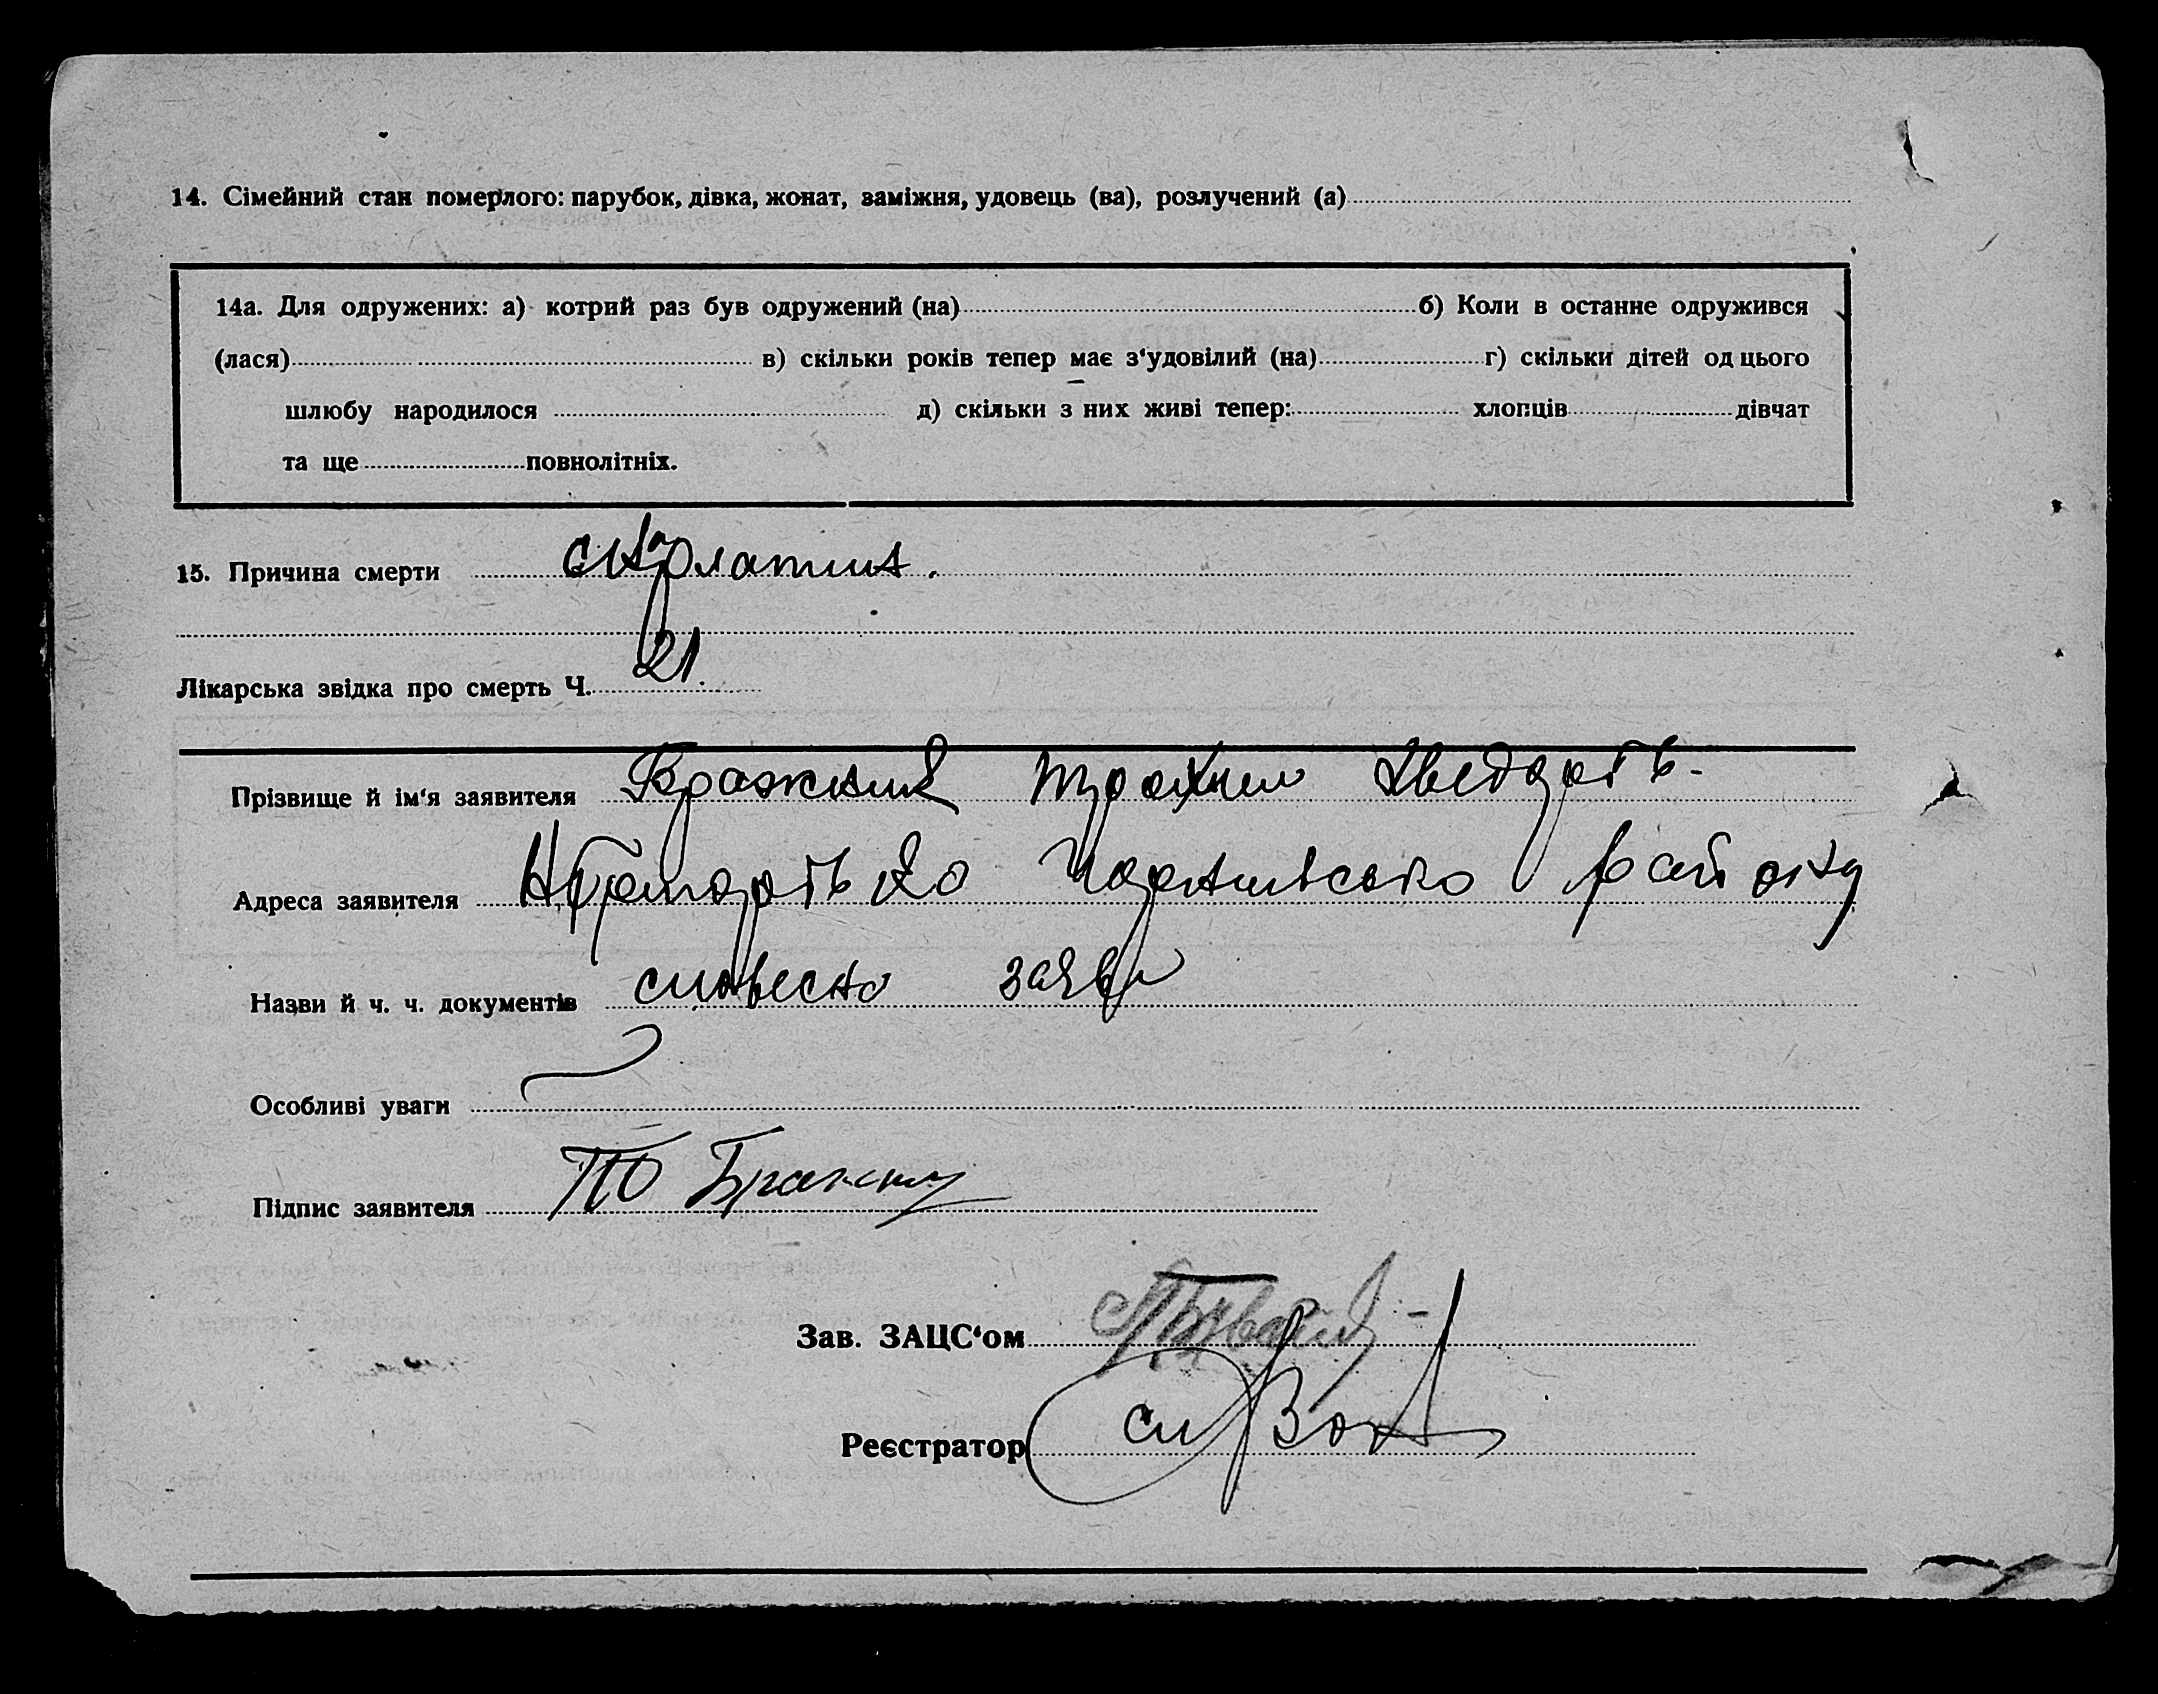 14. Сімейний стан померлого: парубок, дівка, жонат, заміжня, удовець (ва), розлучений (а)
14а. Для одружених: а) котрий раз був одружений (на) б) Коли в останне одружився
(лася) в) скільки років тепер має з‘удовілий (на) г) скільки дітей од цього
шлюбу народилося д) скільки з них живі тепер: хлопців дівчат
та ще повнолітніх.
15. Причина смерти скарлатина.
Лікарська звідка про смерть Ч. 21.
Прізвище й ім‘я заявителя Бражник Трохим
Адреса заявителя району
Назви й ч. ч. документів словесно заяву
Особливі уваги
Підпис заявителя
Зав. ЗАЦС‘ом
Реєстратор